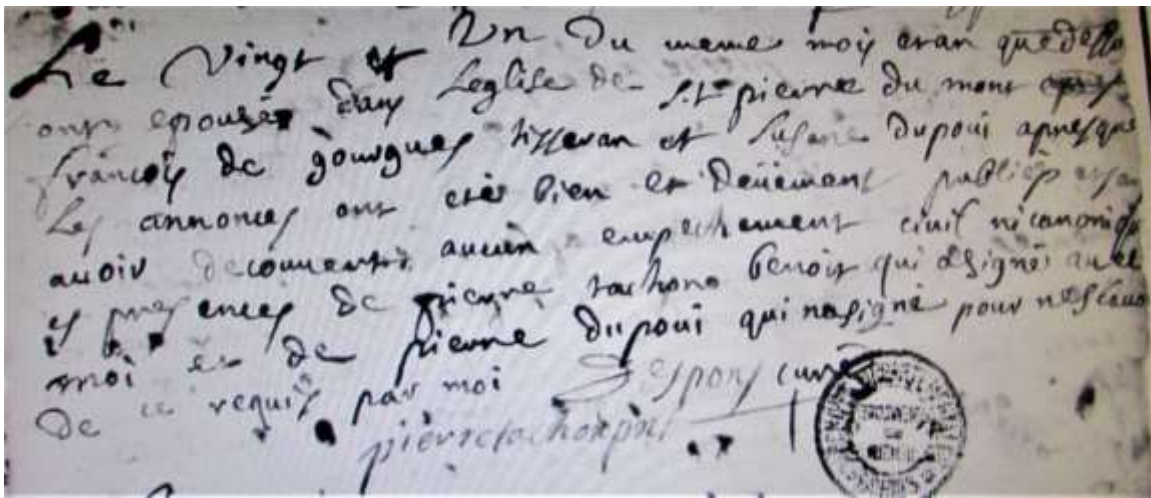 Le vingt et un du meme mois et an que dessu
ont epousé dans Leglise de St pierre du mont
françois de gourgues tisseran et Susane dupoui apres que
Les annonces ont eté bien et deüement publiés et san
auoir decouuert aucun empechement ciuil ni canoniq
es presences de pierre tachono benoit qui a signé auec
moi et de pierre dupoui qui na signé pour ne scauo
de ce requis par moi Despons curé
pierre tachon